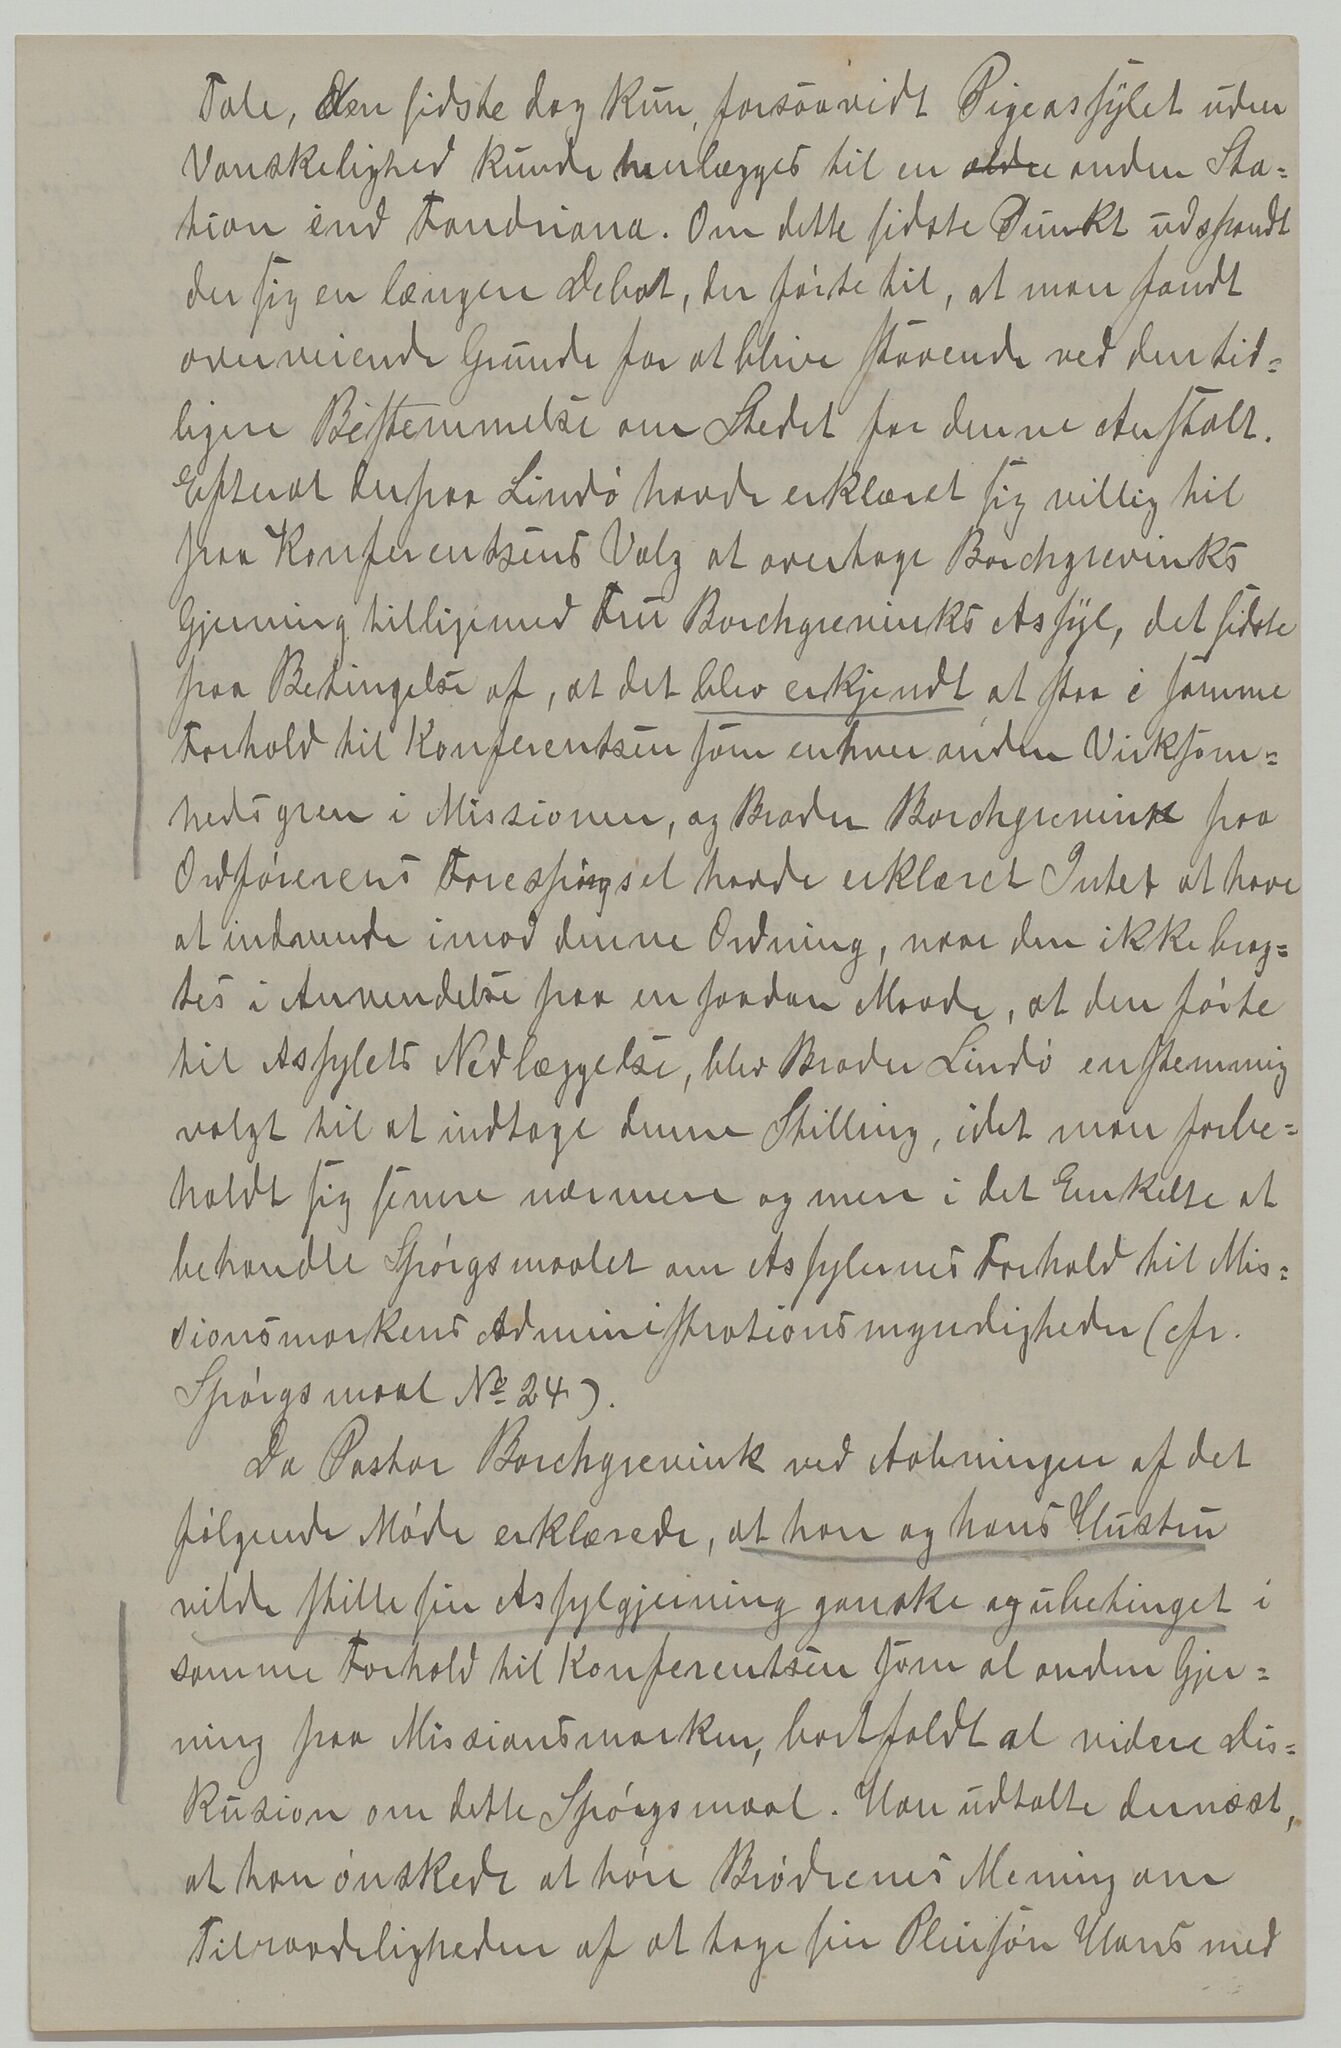 Tale, den sidste dog kun, forsaavidt Pigeasylet uden
Vanskelighed kunde henlægges til en anden Sta=
tion end Fandriana. Om dette sidste Punkt udspandt
der sig en længere Debat, der førte til, at man fandt
overveiende Grunde for at blive staaende ved den tid=
ligere Bestemmelse om Stedet for denne Anstalt.
Efterat derpaa Lindø havde erklæret sig villig til
paa Konferentsens Valg at overtage Borchgrevinks
Gjerning tilligemed Fru Borchgrevinks Asyl, det sidste
paa Betingelse af, at det blev erkjendt at staa i samme
Forhold til Konferentsen som enhver anden Virksom=
hedsgren i Missionen, og Broder Borchgrevink paa
Ordførerens Forespørgsel havde erklæret Intet at have
at indvende imod denne Ordning, naar den ikke brag=
tes i Anvendelse paa en saadan Maade, at den førte
til Asylets Nedlæggelse, blev Broder Lindø enstemmig
valgt til at indtage denne Stilling, idet man forbe=
holdt sig senere nærmere og mere i det Enkelte at
behandle Spørgsmaalet om Asylernes Forhold til Mis=
sionsmarkens Administrationsmyndigheder (cfr.
Spørgsmaal No 24).
Da Pastor Borchgrevink ved Aabningen af det
følgende Møde erklærede, at han og hans Hustru
vilde stille sin Asylgjerning ganske og ubetinget i
samme Forhold til Konferentsen som al anden Gjer=
ning paa Missionsmarken, bortfaldt al videre Dis=
kusion om dette Spørgsmaal. Han udtalte dernæst,
at han ønskede at høre Brødrenes Mening om
Tilraadeligheden af at tage sin Pleiesøn Hans med